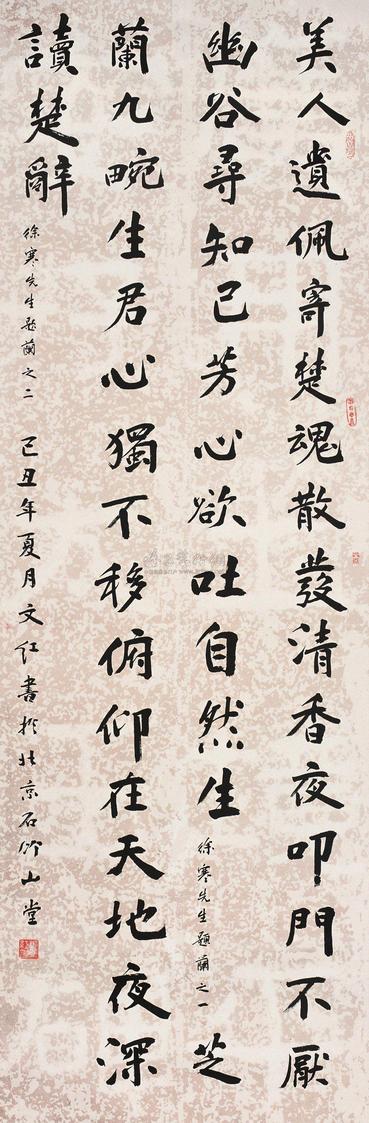 美人遺佩寄楚魂散發清香夜叩門不厭
幽谷尋知己芳心欲吐自然生 徐寒先生題蘭之一 芝
蘭九畹生君心獨不移俯仰在天地夜深
讀楚辭 徐寒先生題蘭之二 己丑年夏月文紅書於北京石竹山堂